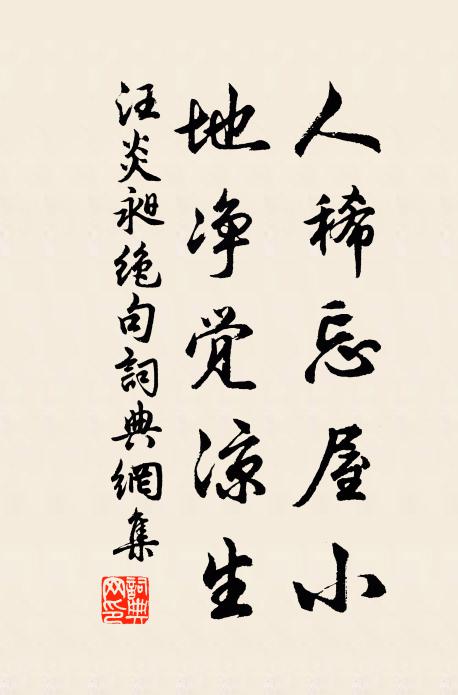 人稀忘屋小
地净觉凉生
汪炎昶绝句词典網集
詞典网印